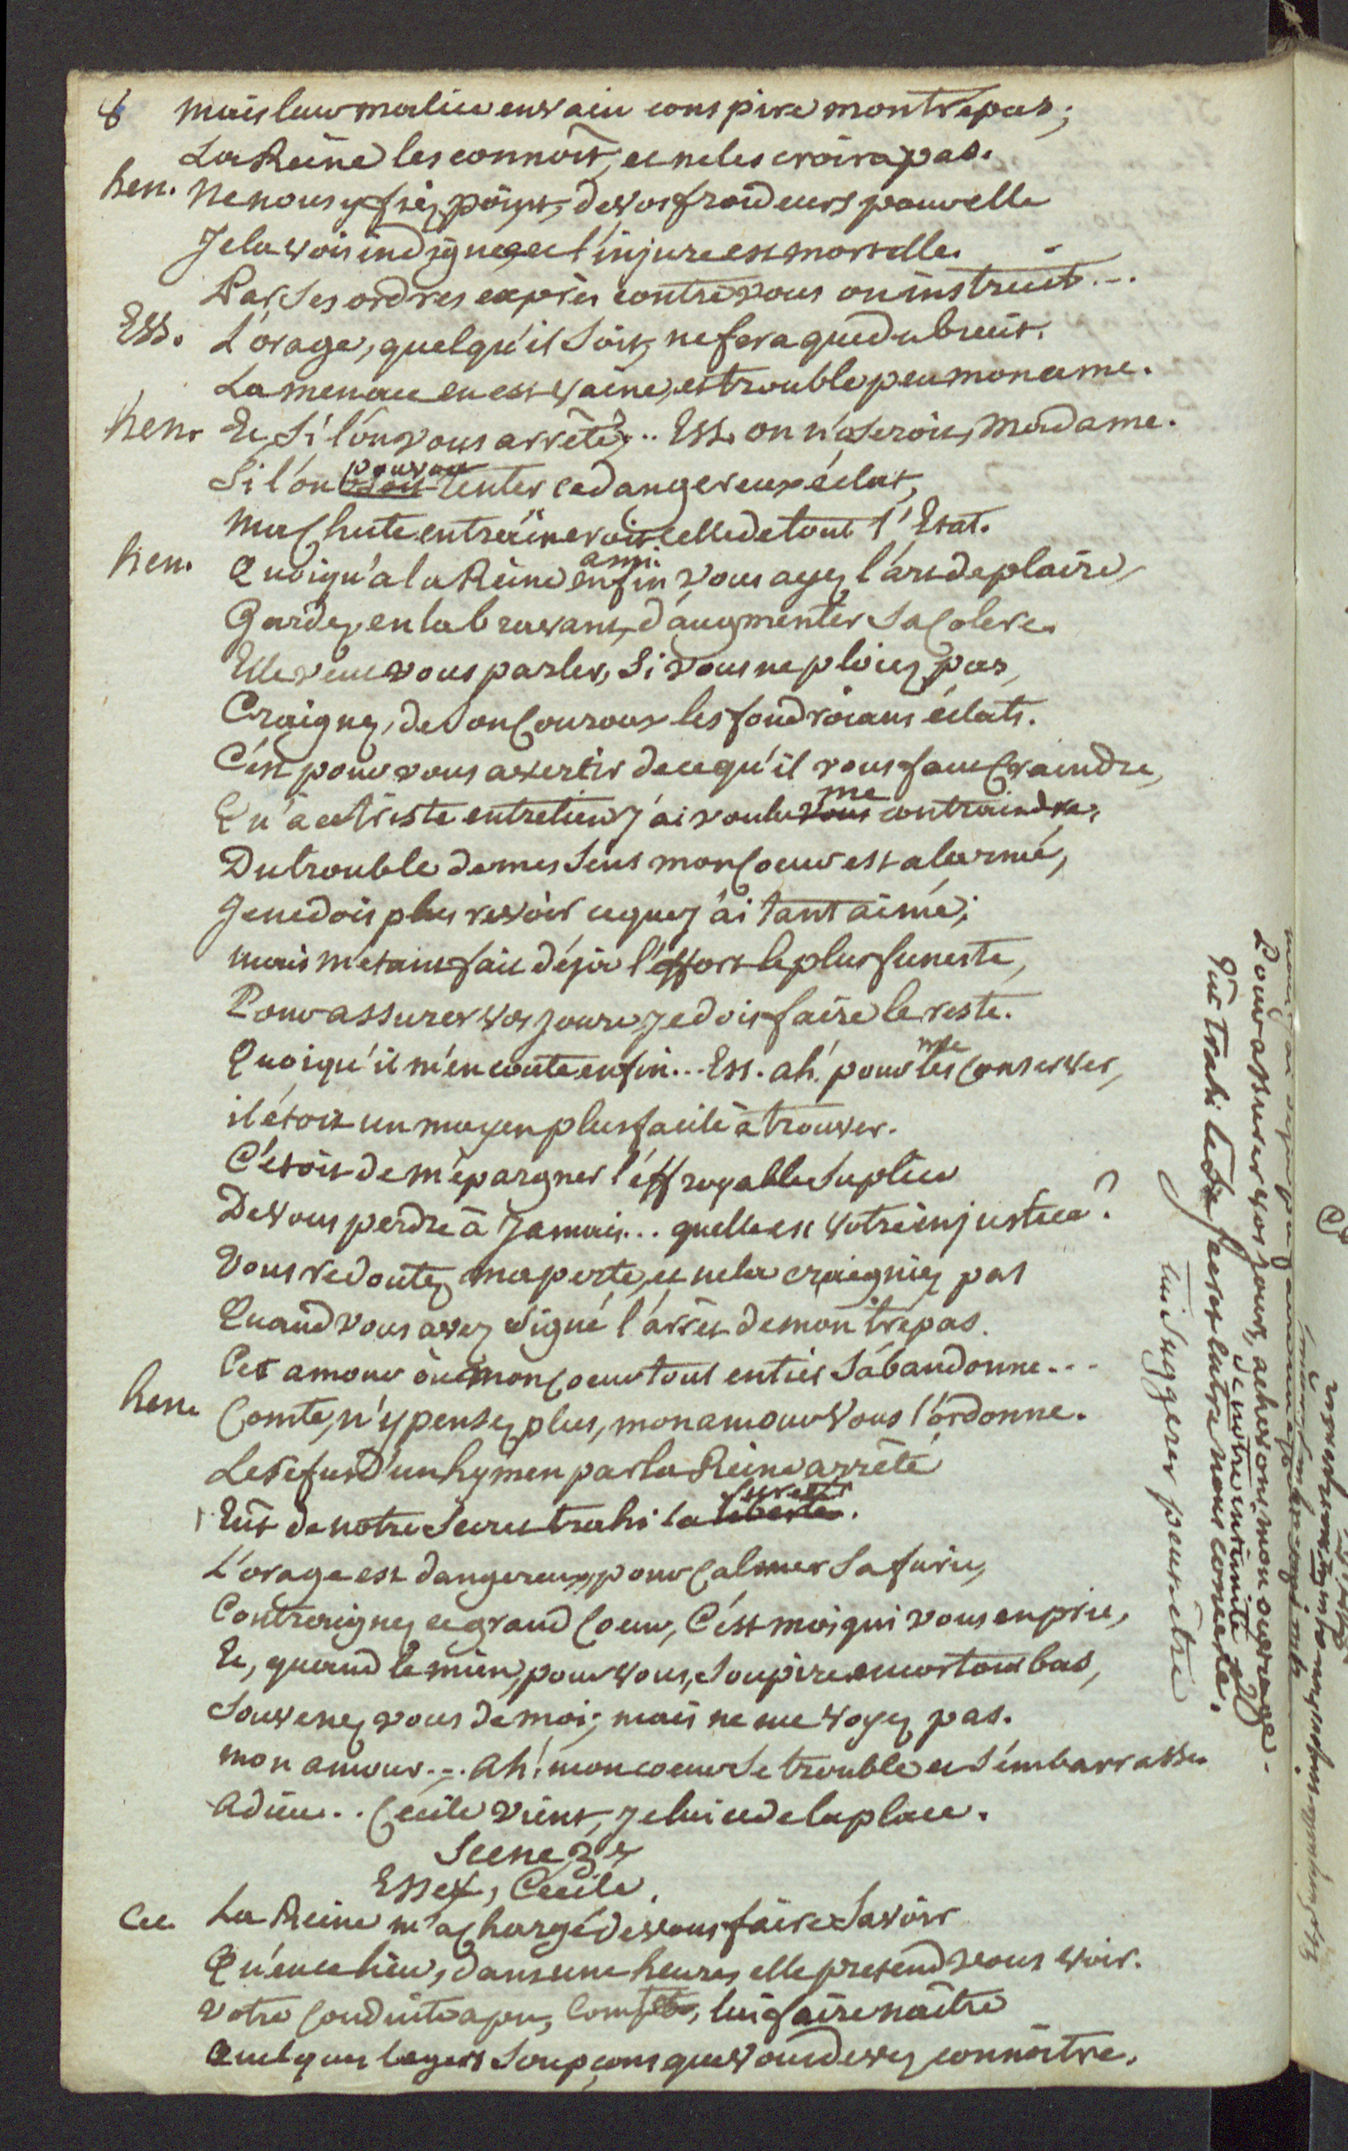 8 mais leur malice en vain conspire mon trépas;
La Reine les connoît, et ne les croira pas.
hen. Ne nous y fiez point, de vos froideurs pour elle
Je la vois indignée et l'injure est mortelle.
Par ses ordres exprès contre vous on instruit...
Ess. L'orage, quelqu'il soit, ne fera que du bruit.
La menace en est vaine, et trouble peu mon ame.
hen. Et, si l'on vous arrête;.. Ess. on n'oseroit, Madame.
Si l'on osoit pouvoit tenter ce dangereux éclat,
Ma chute entraîneroit celle de tout l'Etat.
hen. Quoiqu'a la Reine enfin ami vous ayez l'art de plaire,
Gardez, en la bravant, d'augmenter sa colere.
Elle veut vous parler, si vous ne ploiez pas,
Craignez, de son couroux les foudroians éclats.
C'est pour vous avertir de ce qu'il vous faut craindre,
Qu'a ce triste entretien j'ai voulu vous me contraindre,
Du trouble de mes sens mon coeur est alarmé,
Je ne dois plus revoir ce que j'ai tant aimé;
mais m'étant fait déja l'effort le plus funeste,
Pour assurer vos jours je dois faire le reste.
Quoiqu'il m'en coute enfin... Ess. ah! pour les me conserver,
il étoit un moyen plus facile à trouver.
C'étoit de m'épargner l'éffroyable suplice
De vous perdre à jamais... quelle est votre injustice?
Vous redoutez ma perte, et ne la craigniez pas
Quand vous avez signé l'arrêt de mon trépas.
Cet amour où mon coeur tout entier s'abandonne...
hen. Comte, n'y pensez plus, mon amour vous l'ordonne.
Le refus d'un hymen par la Reine arrêté
Eût de notre secret trahi la liberté sureté.
L'orage est dangereux, pour calmer sa furie,
Contraignez ce grand coeur, c'est moi qui vous en prie,
Et, quand le mien, pour vous, soupire encor tout bas,
Souvenez vous de moi; mais ne me voyez pas.
mon amour... Ah! mon coeur se trouble et s'embarrasse.
Adieu.. Cécile vient, je lui cede la place.
Scene 3e
Essex, Cecile.
Cec. La Reine m'a chargé de vous faire savoir
Qu'en ce lieu, dans une heure, elle pretend vous voir.
Votre conduite a pu, Comte, lui faire naître
Quelques legers soupçons que vous devez connoître.
Pour assurer vos jours, achevons mon ouvrage.
de notre intimité
Eût trahi le secret entre nous concerté.
lui suggerer peut-être